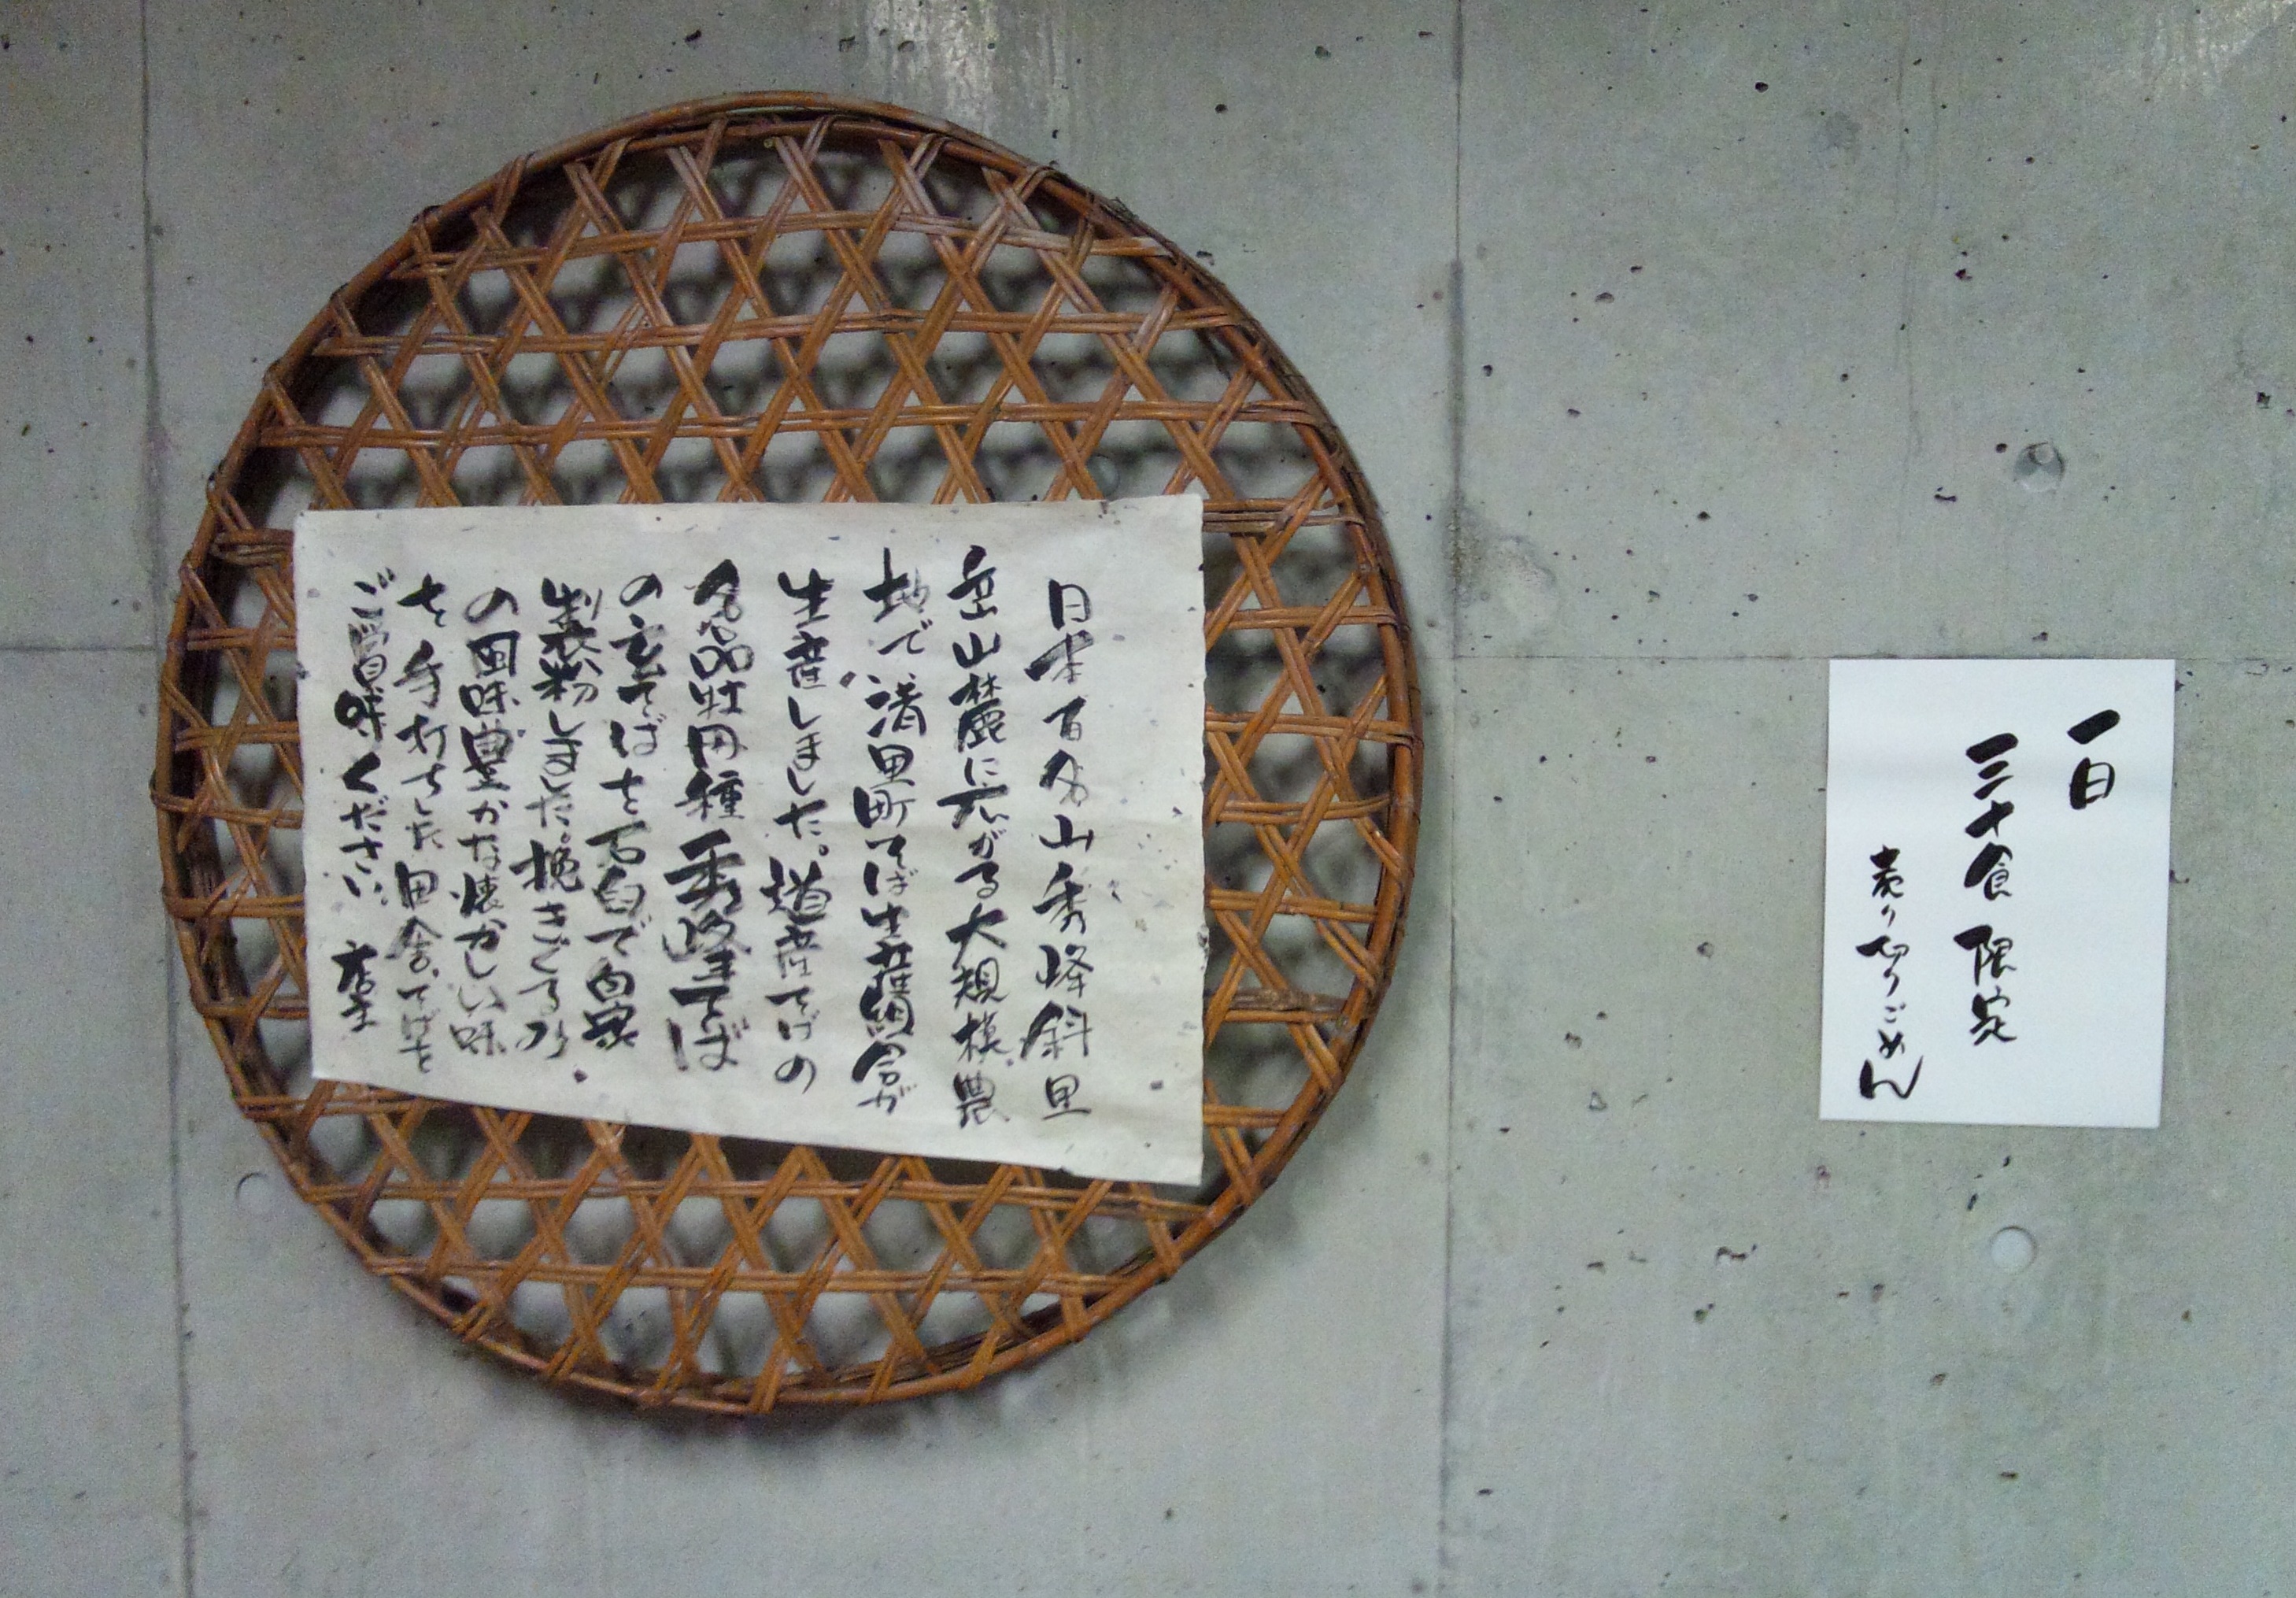 一日
三十食限定
売り切りごめん
日本百名山秀峰斜里
岳山麓に広がる大規模農
地で清里町そば生産組合が
生産しました。道産そばの
名品牡丹種秀峰そば
の玄そばを石臼で自家
製粉しました。挽きぐるみ
の風味豊かな懐かしい味
を手打ちした田舎そばを
ご賞味ください。店主